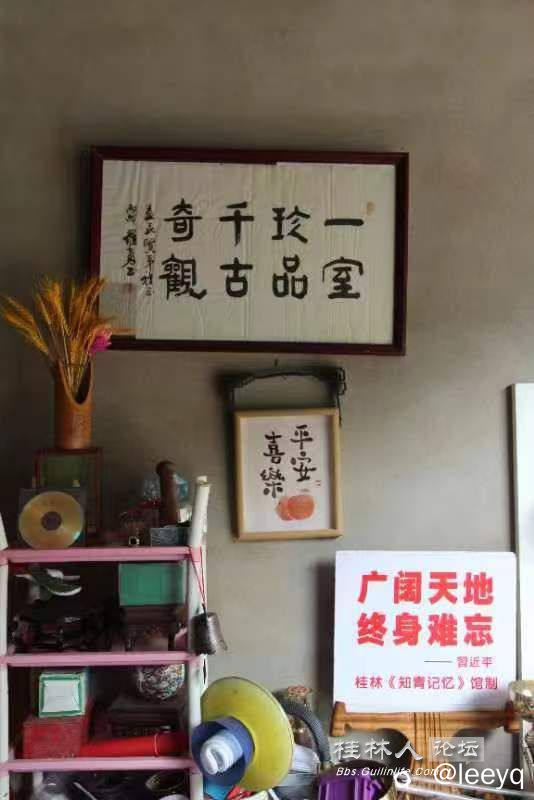 一室
珍品
千古
奇觀
平安
喜樂
广阔天地
终身难忘
——习近平
桂林《知青记忆》馆制
桂林人论坛
Bbs.Guilinlife.Com
@leeyq